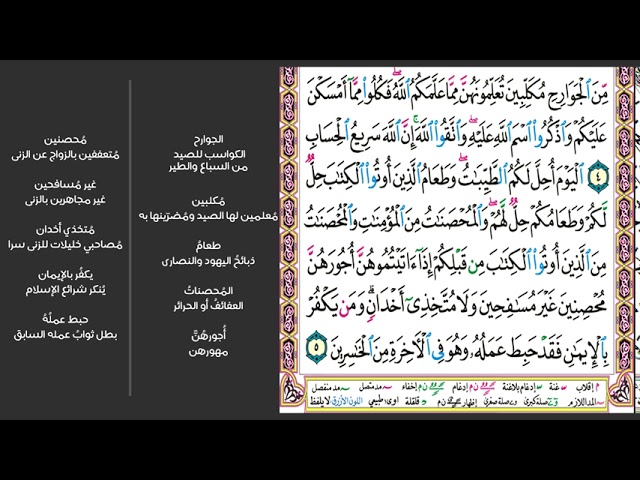 مِّنَ الْجَوَارِحِ مُكَلِّبِينَ تُعَلِّمُونَهُنَّ مِمَّا عَلَّمَكُمُ اللَّهُ ۖ فَكُلُوا مِمَّا أَمْسَكْنَ
عَلَيْكُمْ وَاذْكُرُوا اسْمَ اللَّهِ عَلَيْهِ ۖ وَاتَّقُوا اللَّهَ ۚ إِنَّ اللَّهَ سَرِيعُ الْحِسَابِ
٤ الْيَوْمَ أُحِلَّ لَكُمُ الطَّيِّبَاتُ ۖ وَطَعَامُ الَّذِينَ أُوتُوا الْكِتَابَ حِلٌّ
لَّكُمْ وَطَعَامُكُمْ حِلٌّ لَّهُمْ ۖ وَالْمُحْصَنَاتُ مِنَ الْمُؤْمِنَاتِ وَالْمُحْصَنَاتُ
مِنَ الَّذِينَ أُوتُوا الْكِتَابَ مِن قَبْلِكُمْ إِذَا آتَيْتُمُوهُنَّ أُجُورَهُنَّ
مُحْصِنِينَ غَيْرَ مُسَافِحِينَ وَلَا مُتَّخِذِي أَخْدَانٍ ۗ وَمَن يَكْفُرْ
بِالْإِيمَانِ فَقَدْ حَبِطَ عَمَلُهُ وَهُوَ فِي الْآخِرَةِ مِنَ الْخَاسِرِينَ ٥
م إقلاب ـ غنة ـ إدغام بلاغنة ـ إدغام ـ إخفاء ـ مد متصل ـ مد منفصل
ـ المد اللازم ـ صلة كبرى ـ صلة صغرى ـ إظهار ـ قلقلة اوى: طبيعي اللون الأزرق: لا يلفظ
الجوارح
الكواسب للصيد
من السباع والطير
مُكلبين
مُعلمين لها الصيد ومُضرّينها به
طعامُ
ذبائحُ اليهود والنصارى
المُحصناتُ
العفائفُ أو الحرائر
أُجورهُنَّ
مهورهن
مُحصنين
مُتعففين بالزواج عن الزنى
غير مسافحين
غير مجاهرين بالزنى
مُتخذي أخدان
مُصاحبي خليلات للزنى سرا
يكفُر بالإيمان
يُنكر شرائع الإسلام
حبط عملُهُ
بطل ثوابُ عمله السابق